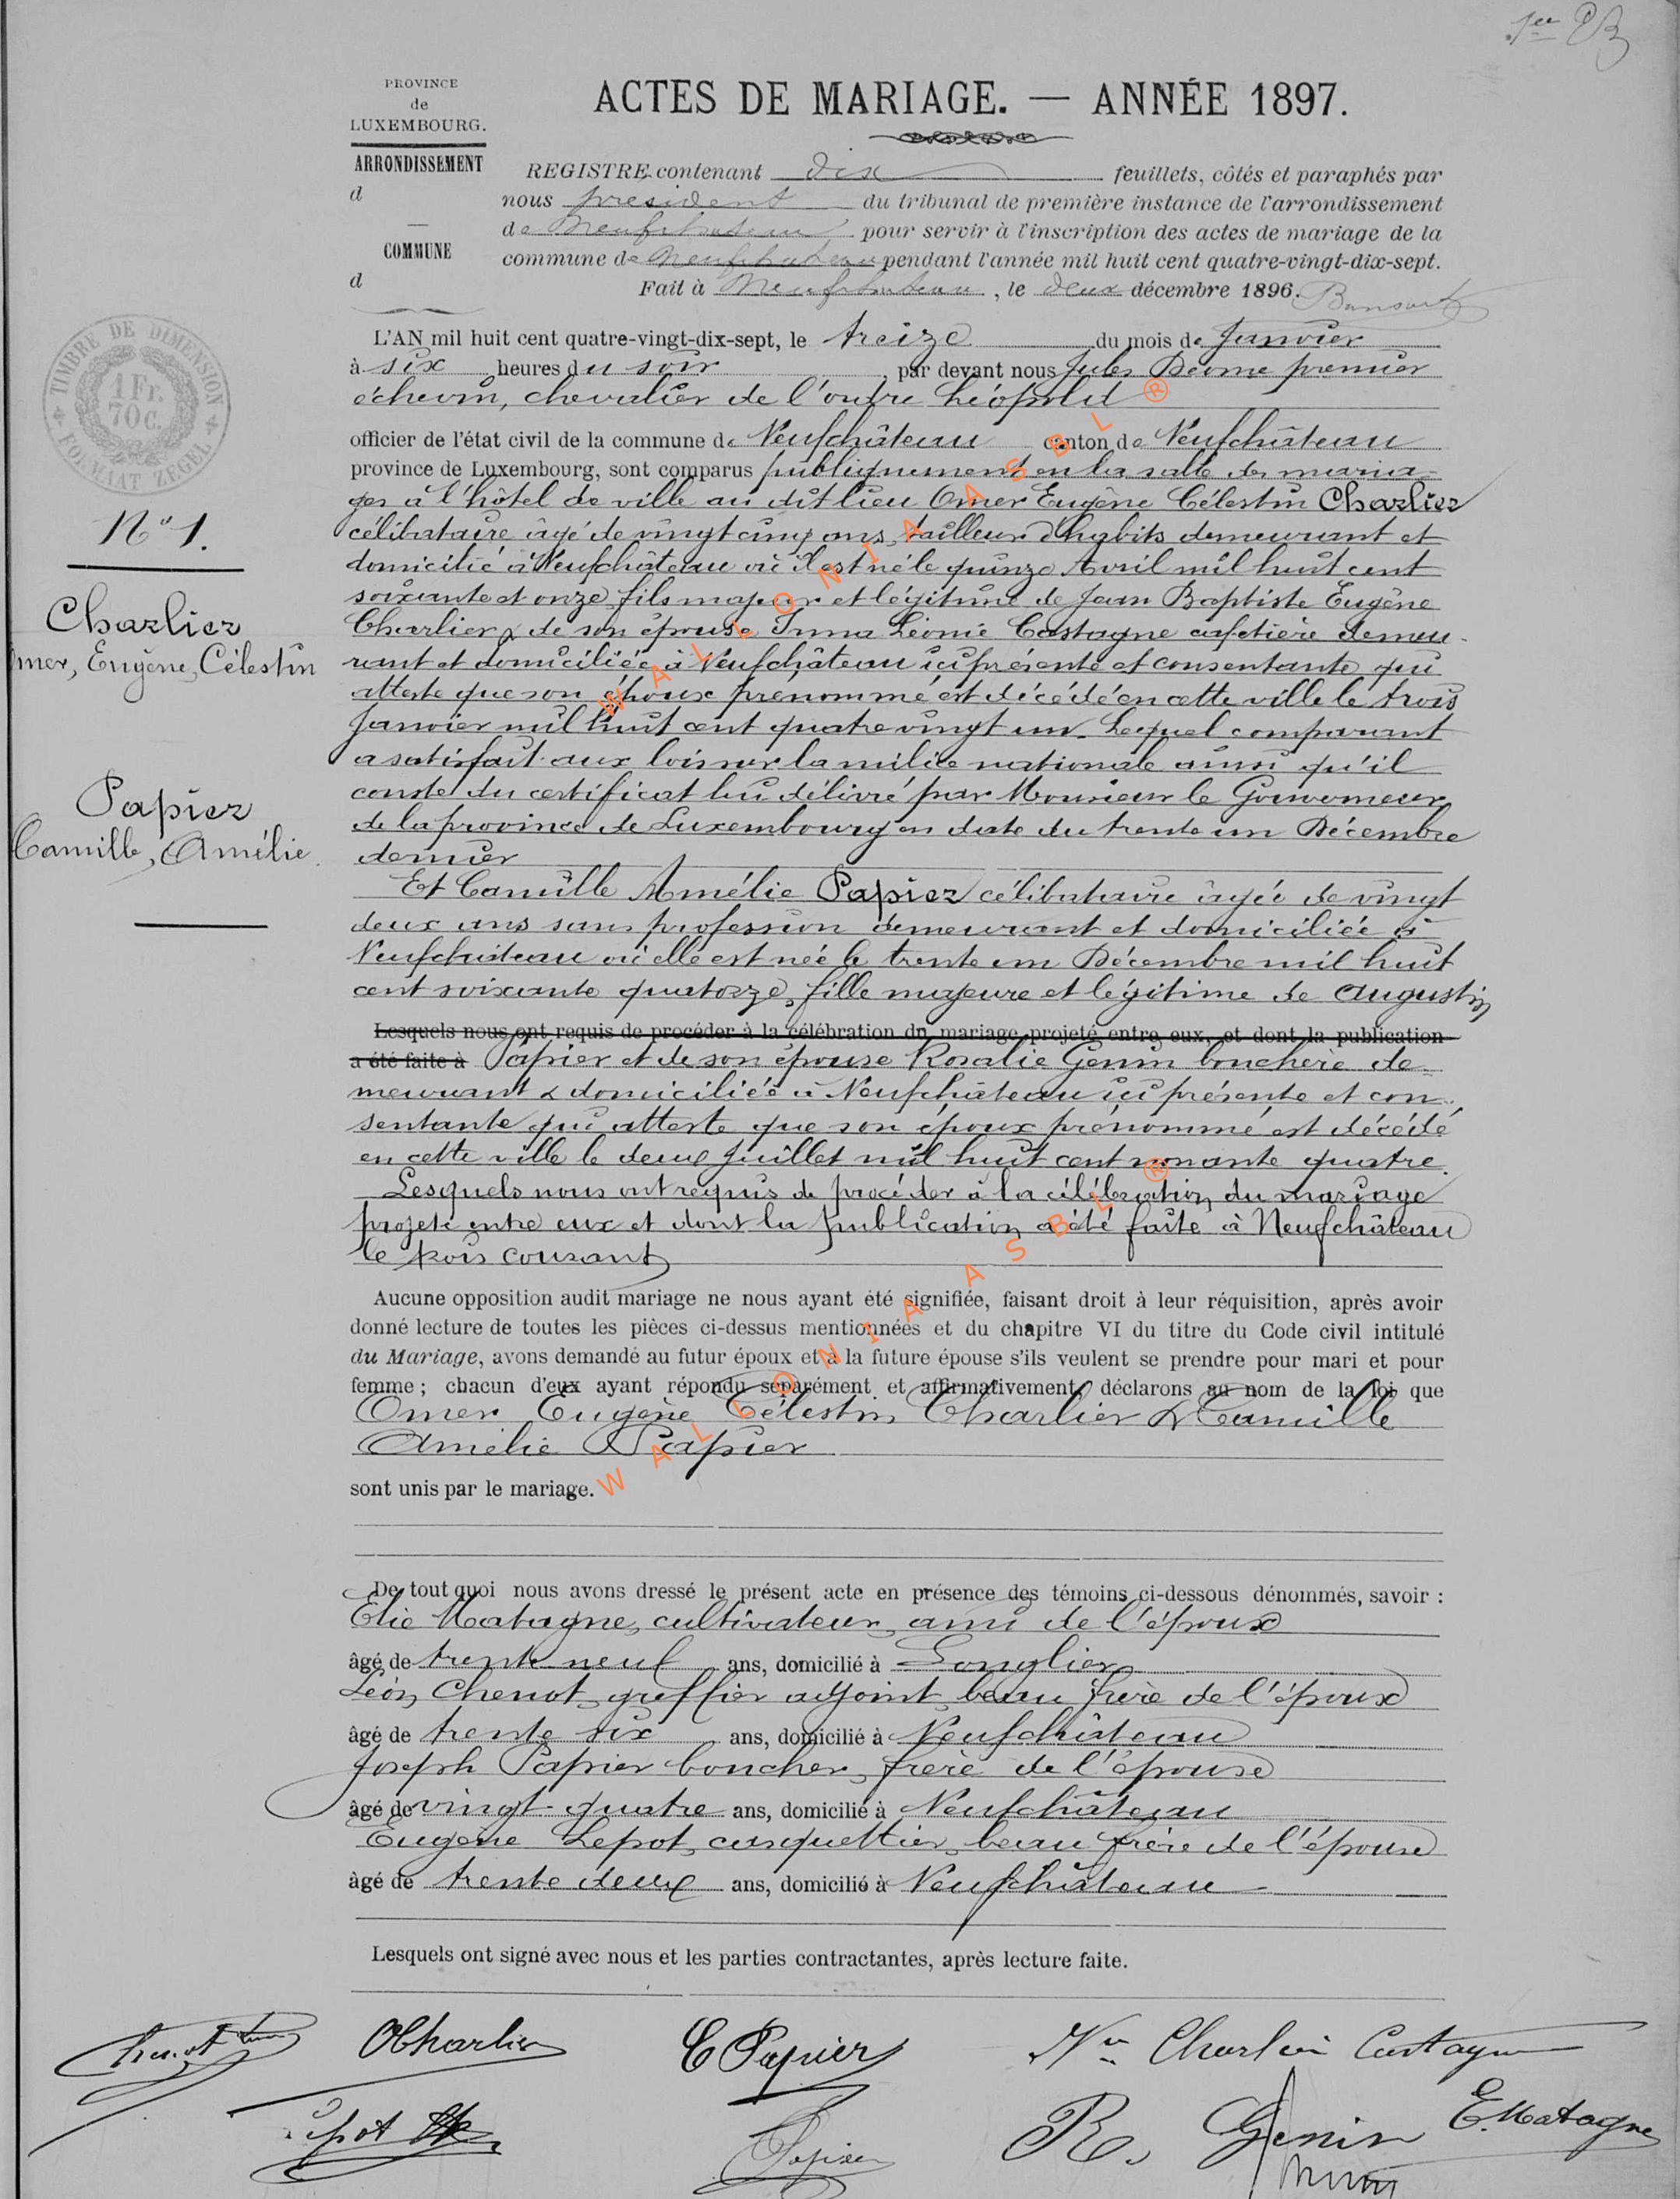 1er
PROVINCE
de
LUXEMBOURG.
ARRONDISSEMENT
d
COMMUNE
d
ACTES DE MARIAGE. — ANNÉE 1897.
REGISTRE contenant dix feuillets, côtés et paraphés par
nous président du tribunal de première instance de l'arrondissement
de Neufchateau pour servir à l'inscription des actes de mariage de la
commune de Neufchateau pendant l'année mil huit cent quatre-vingt-dix-sept.
Fait à Neufchateau, le deux décembre 1896.
TIMBRE DE DIMENSION
1 Fr.
70 c.
FORMAAT ZEGEL
L'AN mil huit cent quatre-vingt-dix-sept, le treize du mois de Janvier
à six heures du soir, par devant nous Jules premier
échevin, chevalier de l'ordre Léopold
officier de l'état civil de la commune de Neufchâteau canton de Neufchâteau
province de Luxembourg, sont comparus publiquement en la salle des maria-
ges à l'hôtel de ville au dit lieu Omer Eugène Célestin Charlier
célibataire âgé de vingt cinq ans, tailleur d'habits demeurant et
domicilié à Neufchâteau où il est né le quinze Avril mil huit cent
soixante et onze, fils majeur et légitime de Jean Baptiste Eugène
Charlier & de son épouse Irma Léonie Castagne cafetière demeu-
rant et domiciliée à Neufchâteau ici présente et consentante qui
atteste que son époux prénommé est décédé en cette ville le trois
Janvier mil huit cent quatre vingt un. Lequel comparant
a satisfait aux lois sur la milice nationale ainsi qu'il
conste du certificat lui délivré par Monsieur le Gouverneur
de la province de Luxembourg en date du trente un Décembre
dernier
Nº 1.
Charlier
Omer, Eugène, Célestin
Papier
Camille, Amélie.
Et Camille Amélie Papier célibataire âgée de vingt
deux ans sans profession demeurant et domiciliée à
Neufchâteau où elle est née le trente un Décembre mil huit
cent soixante quatorze, fille majeure et légitime de Augustin
Lesquels nous ont requis de procéder à la célébration du mariage projeté entre eux, et dont la publication
a été faite à Papier et de son épouse Rosalie Genin bouchère de-
meurant & domiciliée à Neufchâteau ici présente et con-
sentante qui atteste que son époux prénommé est décédé
en cette ville le deux Juillet mil huit cent nonante quatre.
Lesquels nous ont requis de procéder à la célébration du mariage
projeté entre eux et dont la publication a été faite à Neufchâteau
le trois courant
Aucune opposition audit mariage ne nous ayant été signifiée, faisant droit à leur réquisition, après avoir
donné lecture de toutes les pièces ci-dessus mentionnées et du chapitre VI du titre du Code civil intitulé
du Mariage, avons demandé au futur époux et à la future épouse s'ils veulent se prendre pour mari et pour
femme ; chacun d'eux ayant répondu séparément et affirmativement, déclarons au nom de la loi que
Omer Eugène Célestin Charlier & Camille
Amélie Papier
sont unis par le mariage.
De tout quoi nous avons dressé le présent acte en présence des témoins ci-dessous dénommés, savoir :
Elie Matagne, cultivateur, ami de l'époux
âgé de trente neuf ans, domicilié à Longlier
Léon Chenot, greffier adjoint, beau frère de l'époux
âgé de trente six ans, domicilié à Neufchâteau
Joseph Papier boucher, frère de l'épouse
âgé de vingt-quatre ans, domicilié à Neufchâteau
Eugène Lepot, casquettier, beau frère de l'épouse
âgé de trente deux ans, domicilié à Neufchâteau
Lesquels ont signé avec nous et les parties contractantes, après lecture faite.
Chenot
OCharlier
C Papier
Charlier Castagne
Lepot
Papier
R. Genin
E. Matagne
WALLONIA ASBL ®
WALLONIA ASBL ®